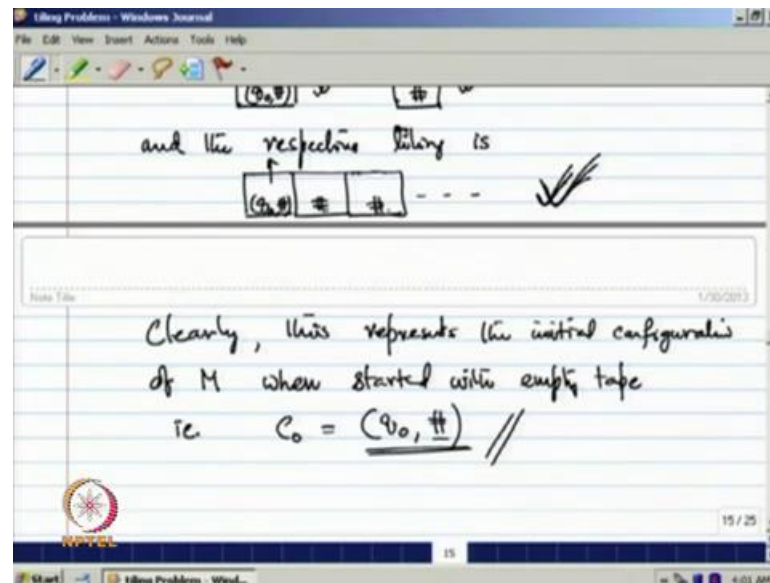 tiling Problem - Windows Journal
File Edit View Insert Actions Tools Help
(q₀,#) #
and the respective tiling is
(q₀,#) # # - - -
Note Title 1/30/2013
Clearly, this represents the initial configuration
of M when started with empty tape
ie. C₀ = (q₀, #) //
NPTEL
15 / 25
15
Start tiling Problem - Wind... 4:01 AM